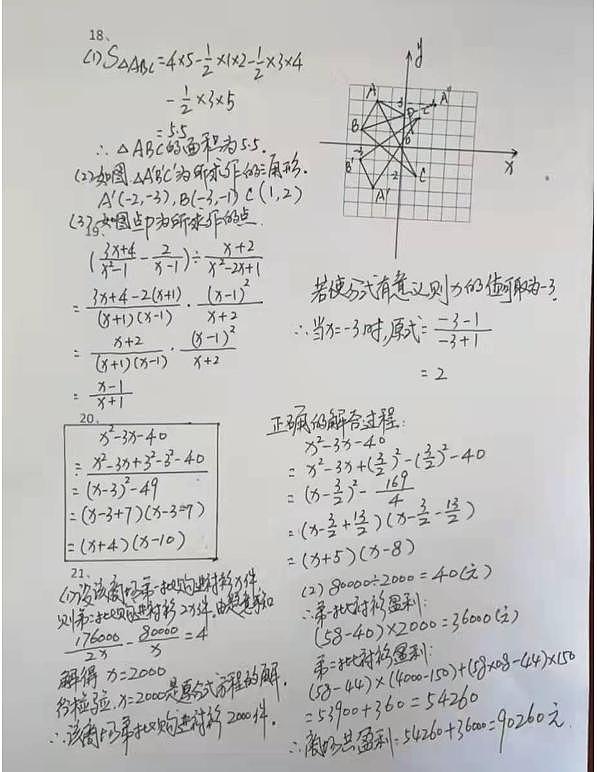 18、
(1) S△ABC = 4×5-1/2×1×2-1/2×3×4
-1/2×3×5
= 5.5
∴ △ABC的面积为5.5.
(2) 如图△A'B'C'为所求作的三角形.
A'(-2,-3), B(-3,-1) C(1,2)
(3) 如图点P为所求作的点.
y
A
3
A''
B
P
C'
-3
0
x
B'
-2
C
A'
19、
((3x+4)/(x²-1) - 2/(x-1)) ÷ (x+2)/(x²-2x+1)
= (3x+4-2(x+1))/((x+1)(x-1)) · (x-1)²/(x+2)
= (x+2)/((x+1)(x-1)) · (x-1)²/(x+2)
= (x-1)/(x+1)
若使分式有意义则x的值可取为-3.
∴当x=-3时,原式= (-3-1)/(-3+1)
= 2
20、
x²-3x-40
= x²-3x+3²-3²-40
= (x-3)²-49
= (x-3+7)(x-3-7)
= (x+4)(x-10)
正确的解答过程:
x²-3x-40
= x²-3x+(3/2)²-(3/2)²-40
= (x-3/2)²-169/4
= (x-3/2+13/2)(x-3/2-13/2)
= (x+5)(x-8)
21、
(1) 设该商场第一批购进衬衫x件
则第二批购进衬衫2x件.由题意得
176000/2x - 80000/x = 4
解得 x=2000
经检验,x=2000是原分式方程的解.
∴该商场第一批购进衬衫2000件.
(2) 80000÷2000=40(元)
∴第一批衬衫盈利:
(58-40)×2000=36000(元)
第二批衬衫盈利:
(58-44)×(4000-150)+(58×0.8-44)×150
= 53900+360=54260
∴商场共盈利:54260+36000=90260元.